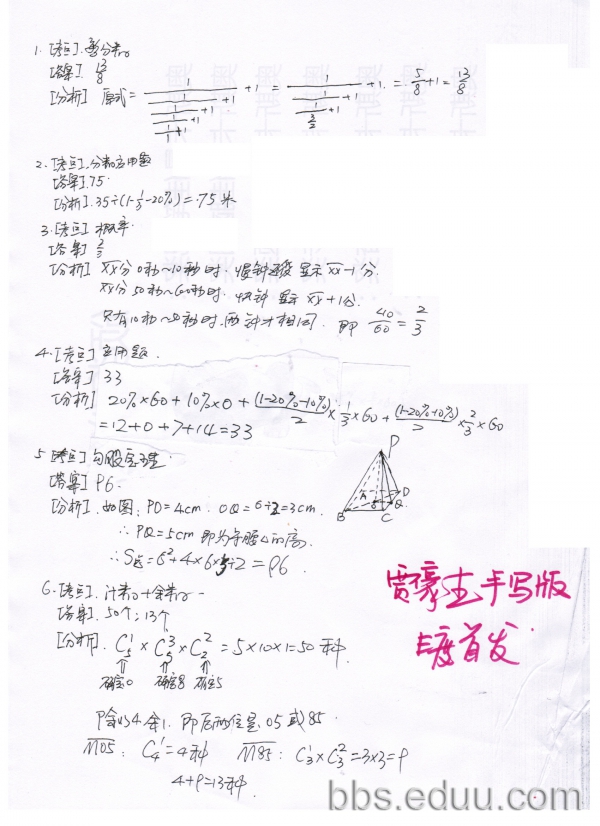 1. [考点]. 繁分数
[答案] 13/8
[分析] 原式= 1/(1/(1/(1/(1/1+1)+1)+1)+1)+1 = 1/(1/(1/(3/2)+1)+1)+1 = 5/8+1 = 13/8
2. [考点]. 分数应用题
[答案] 75.
[分析]. 35÷(1-1/3-20%)=75米
3. [考点] 概率.
[答案] 2/3
[分析] XX分0秒~10秒时. 慢钟 显示 XX-1分.
XX分50秒~60秒时. 快钟 显示 XX+1分.
只有10秒~50秒时. 两钟才相同. 即 40/60 = 2/3
4. [考点] 应用题.
[答案] 33
[分析] 20%×60+10%×0+(1-20%-10%)/2×1/3×60+(1-20%-10%)/2×2/3×60
=12+0+7+14=33
5. [考点] 勾股定理.
[答案] 96.
[分析]. 如图: PO=4cm. OQ=6÷2=3cm.
∴ PQ=5cm 即为等腰△的高.
∴ S表=6²+4×6×5÷2=96
P
A
D
O
Q
B
C
6. [考点]. 计数+余数
[答案]. 50个; 13个
[分析]. C₅¹×C₅³×C₂²=5×10×1=50种
确定0 确定8 确定5
除以4余1. 即后两位是05或85.
M05: C₄¹=4种 M85: C₃¹×C₃²=3×3=9
4+9=13种
贾豪杰手写版
E度首发
bbs.eduu.com